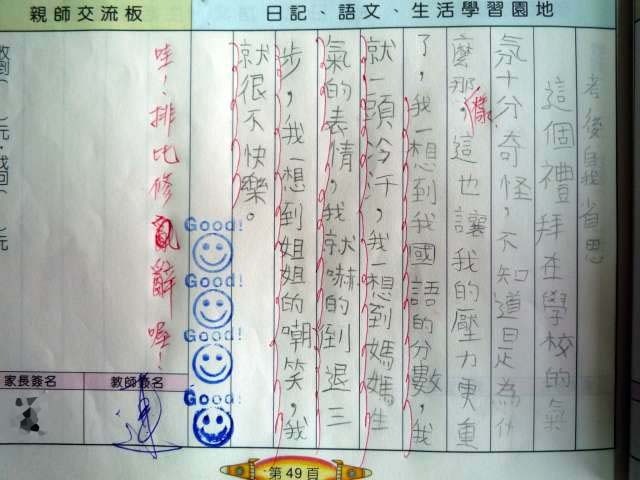 日記、語文、生活學習園地
考後自我省思
這個禮拜在學校的氣
氛十分奇怪，不知道是為什
麼那樣，這也讓我的壓力更重
了，我一想到我國語的分數，我
就一頭冷汗，我一想到媽媽生
氣的表情，我就嚇的倒退三
步，我一想到姐姐的嘲笑，我
就很不快樂。
Good!
Good!
Good!
Good!
親師交流板
哇！排比修辭喔！
教師簽名
家長簽名
第49頁